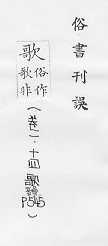 俗書刊誤
歌俗作歌非(卷一·十四歌韻P545)